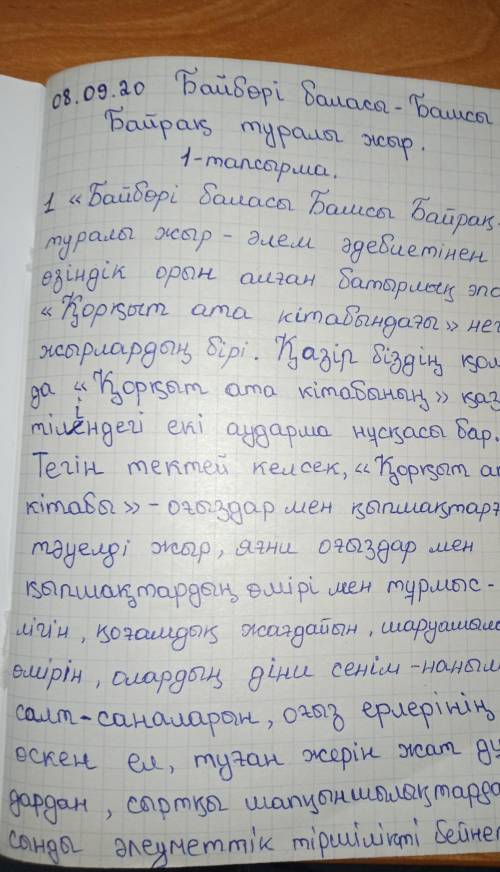 08.09.20 Байбөрі баласы - Бамсы
Байрақ туралы жыр.
1-тапсырма.
1 «Байбөрі баласы Бамсы Байрақ
туралы жыр - әлем әдебиетінен
өзіндік орын алған батырлық эпо
«Қорқыт ата кітабындағы» нег
жырлардың бірі. Қазір біздің қол
да «Қорқыт ата кітабының» қаз
тіліндегі екі аударма нұсқасы бар.
Тегін тектей келсек, «Қорқыт а
кітабы» - оғыздар мен қыпшақтарғ
тәуелді жыр, яғни оғыздар мен
қыпшақтардың өмірі мен тұрмыс-
лігін, қоғамдық жағдайын, шаруашыл
өмірін, олардың діни сенім-наным
салт-саналарын, оғыз ерлерінің
өскен ел, туған жерін жат ду
дардан, сыртқы шапқыншылықтарда
сынды әлеуметтік тіршілікті бейнел